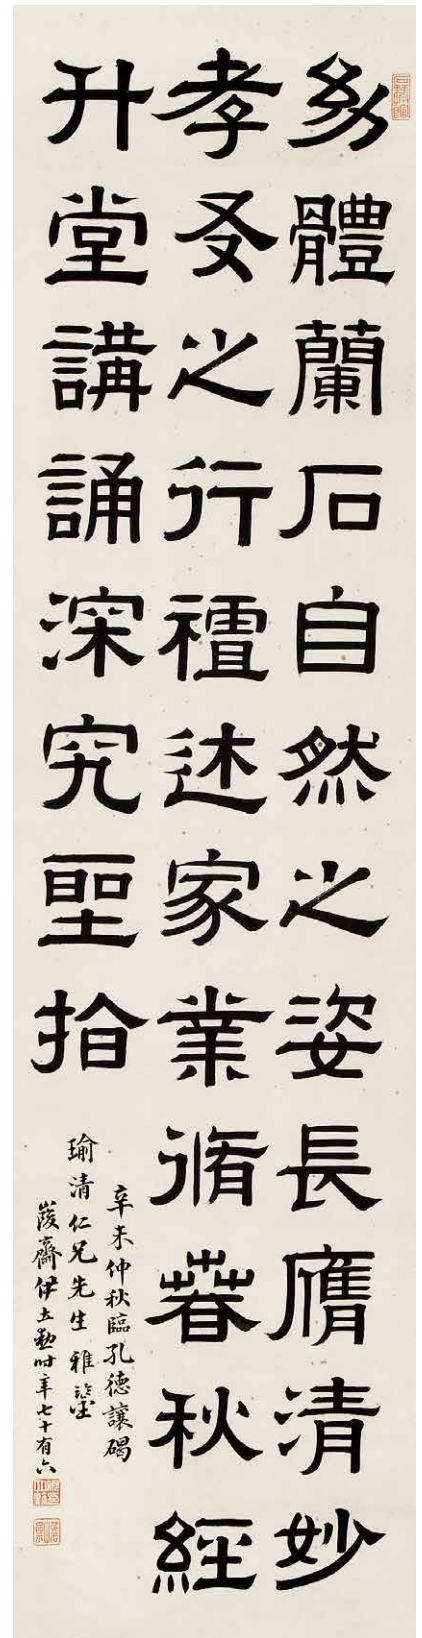 幼體蘭石自然之姿長膺清妙
孝友之行襢述家業脩春秋經
升堂講誦深究聖指
辛未仲秋臨孔德讓碣
瑜清仁兄先生雅鑒
峻齋伊立勳時年七十有六